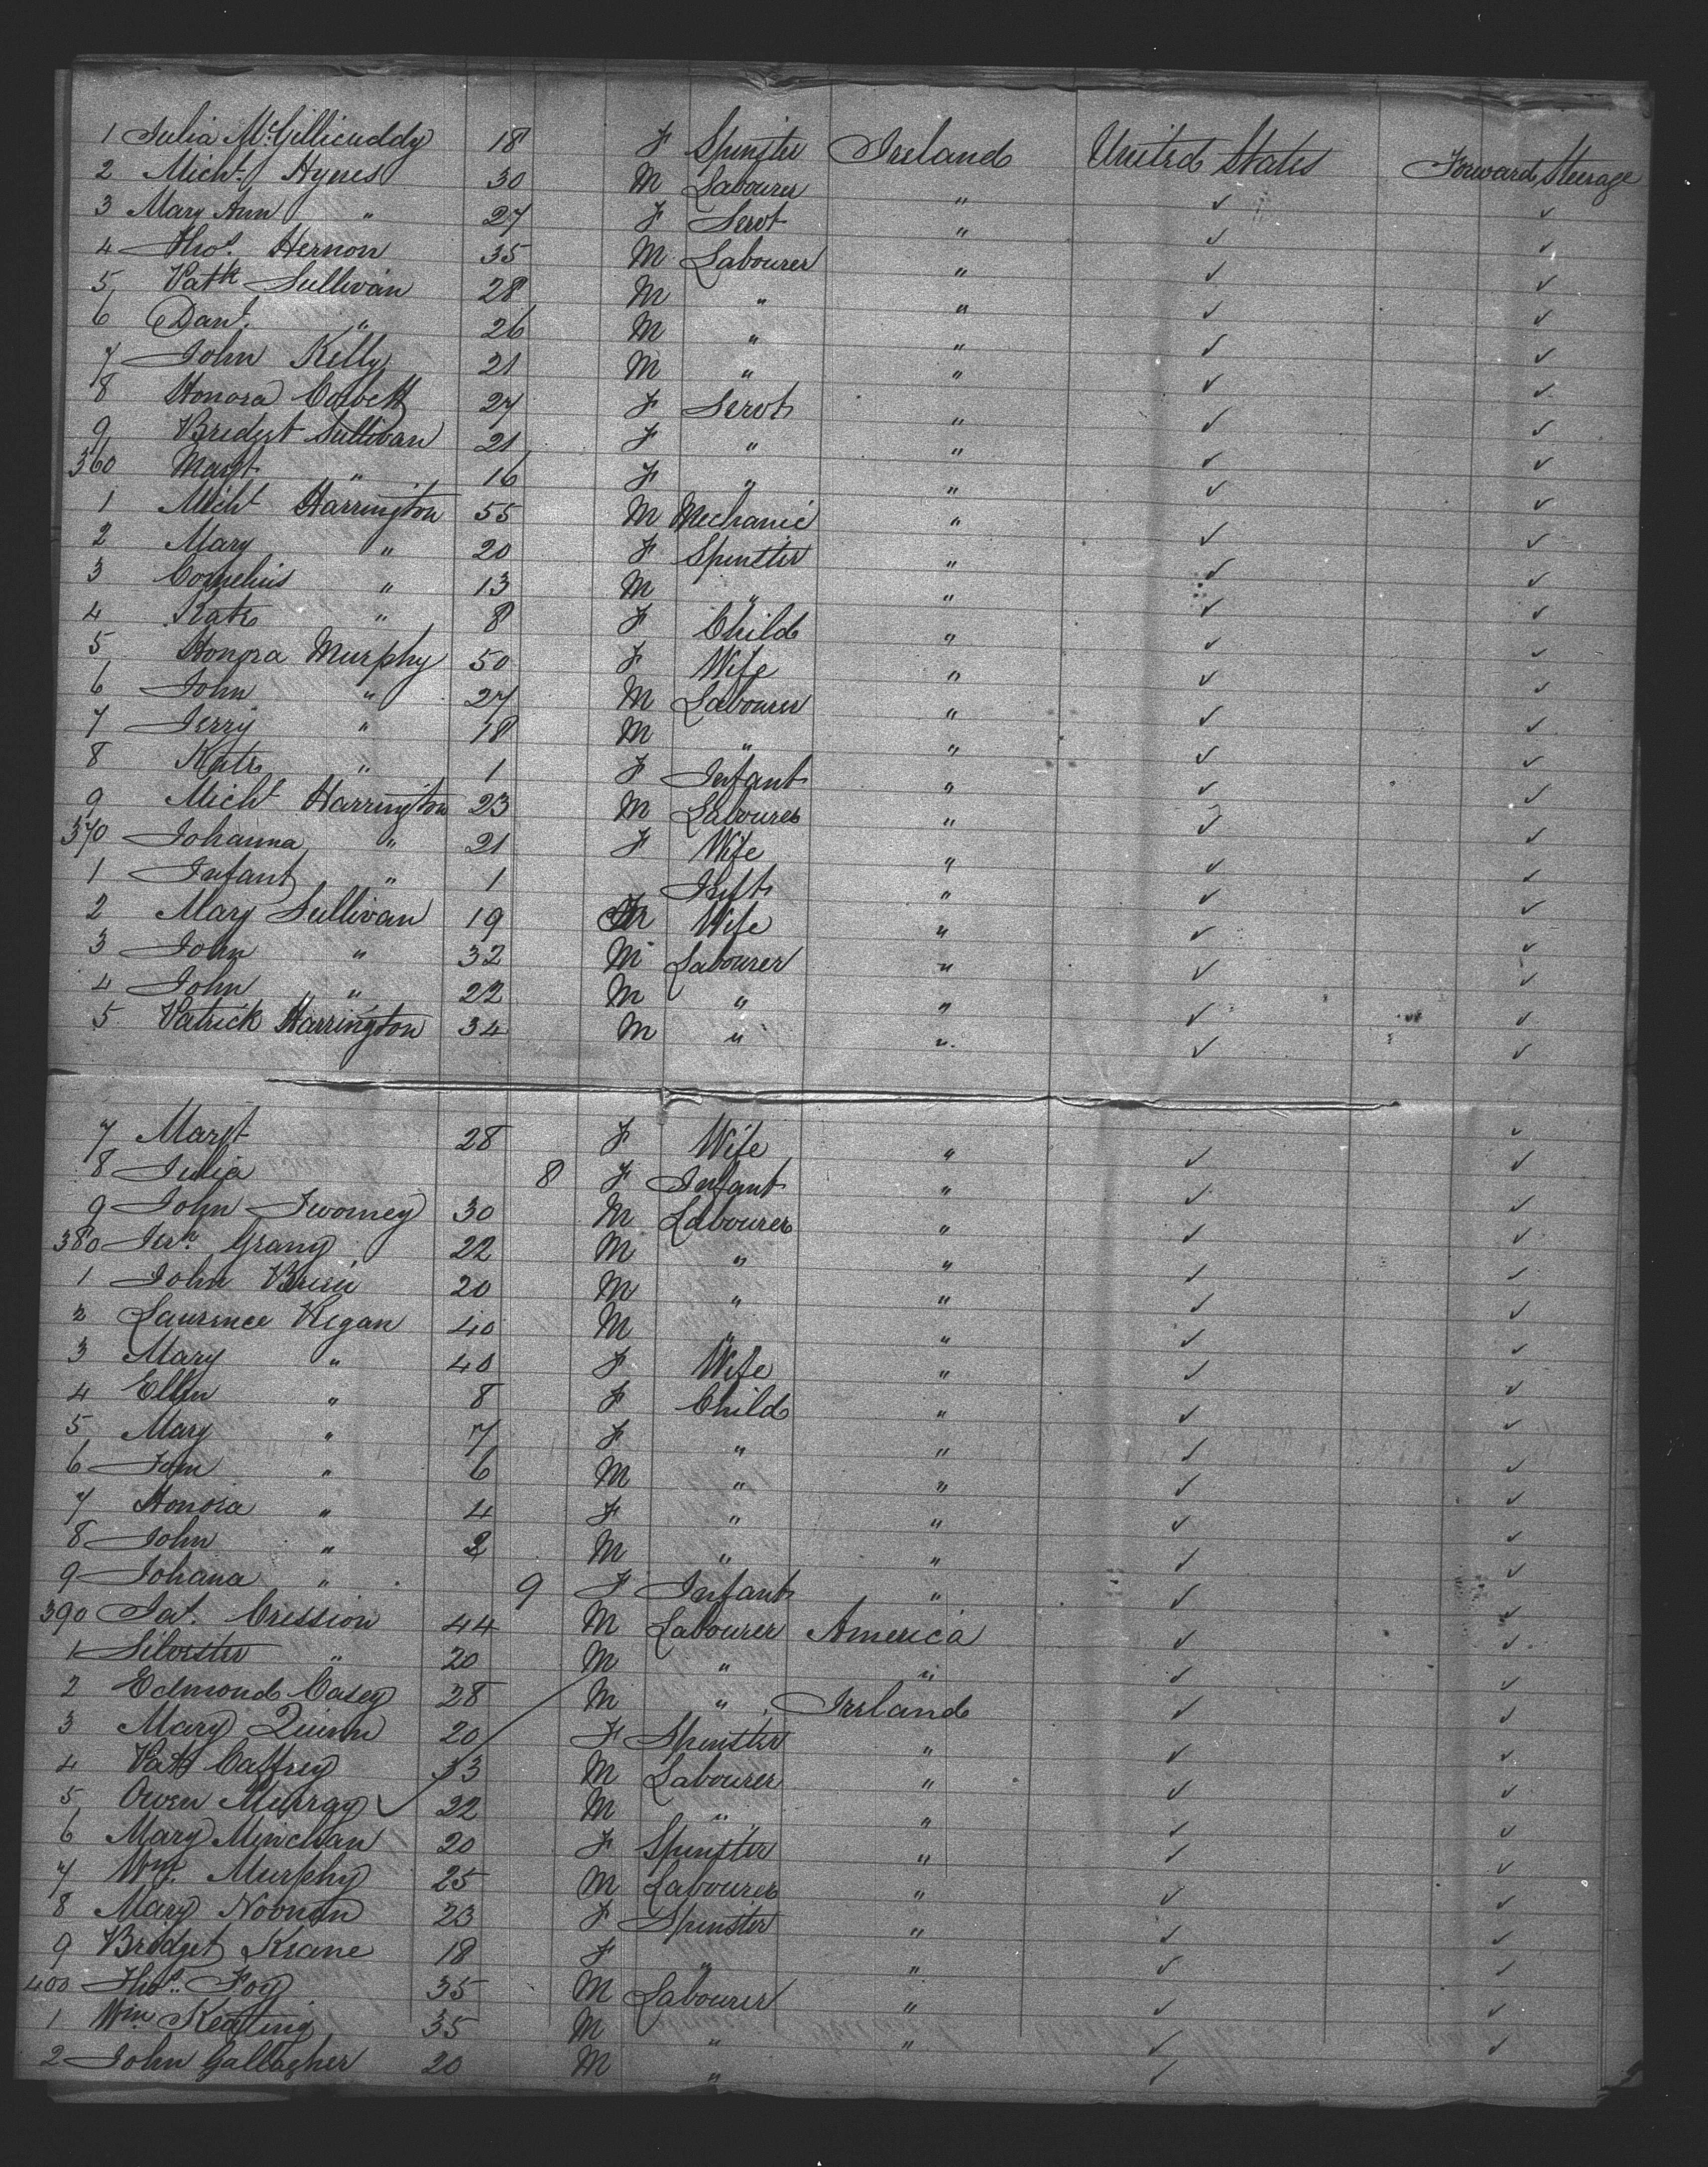 1 Julia McGillicuddy 18 F Spinster Ireland United States Forward Steerage
2 Michl. Hynes 30 M Labourer " ✓ ✓
3 Mary Ann " 27 F Servt " ✓ ✓
4 Thos. Hernon 35 M Labourer " ✓ ✓
5 Patk Sullivan 28 M " " ✓ ✓
6 Danl. " 26 M " " ✓ ✓
7 John Kelly 21 M " " ✓ ✓
8 Honora Corbett 27 F Servt " ✓ ✓
9 Bridget Sullivan 21 F " " ✓ ✓
360 Margt " 16 F " " ✓ ✓
1 Michl Harrington 55 M Mechanic " ✓ ✓
2 Mary " 20 F Spinster " ✓ ✓
3 Cornelius " 13 M " " ✓ ✓
4 Kate " 8 F Child " ✓ ✓
5 Honora Murphy 50 F Wife " ✓ ✓
6 John " 27 M Labourer " ✓ ✓
7 Jerry " 18 M " " ✓ ✓
8 Kate " 1 F Infant " ✓ ✓
9 Michl Harrington 23 M Labourer " ✓ ✓
370 Johanna " 21 F Wife " ✓ ✓
1 Infant " 1 Inft " ✓ ✓
2 Mary Sullivan 19 Wife " ✓ ✓
3 John " 32 M Labourer " ✓ ✓
4 John " 22 M " " ✓ ✓
5 Patrick Harrington 34 M " " ✓ ✓
7 Margt 28 F Wife " ✓ ✓
8 Julia 8 F Infant " ✓ ✓
9 John Twomey 30 M Labourer " ✓ ✓
380 Jerh. Grany 22 M " " ✓ ✓
1 John 20 M " " ✓ ✓
2 Laurence Regan 40 M " " ✓ ✓
3 Mary " 40 F Wife " ✓ ✓
4 Ellen " 8 F Child " ✓ ✓
5 Mary " 7 F " " ✓ ✓
6 " 6 M " " ✓ ✓
7 Honora " 4 F " " ✓ ✓
8 John " 2 M " " ✓ ✓
9 Johana " 9 F Infant " ✓ ✓
390 Jas. Cression 44 M Labourer America ✓ ✓
1 Silvester " 20 M " " ✓ ✓
2 Edmond Casey 28 M " Ireland ✓ ✓
3 Mary Quinn 20 F Spinster " ✓ ✓
4 Patk Caffrey 33 M Labourer " ✓ ✓
5 Owen Murray ✓ 22 M " " ✓ ✓
6 Mary Minchan 20 F Spinster " ✓ ✓
7 Wm. Murphy 25 M Labourer " ✓ ✓
8 Mary Noonan 23 F Spinster " ✓ ✓
9 Bridget Keane 18 F " " ✓ ✓
400 Thos. Foy 35 M Labourer " ✓ ✓
1 Wm Keating 35 M " " ✓ ✓
2 John Gallagher 20 M " ✓